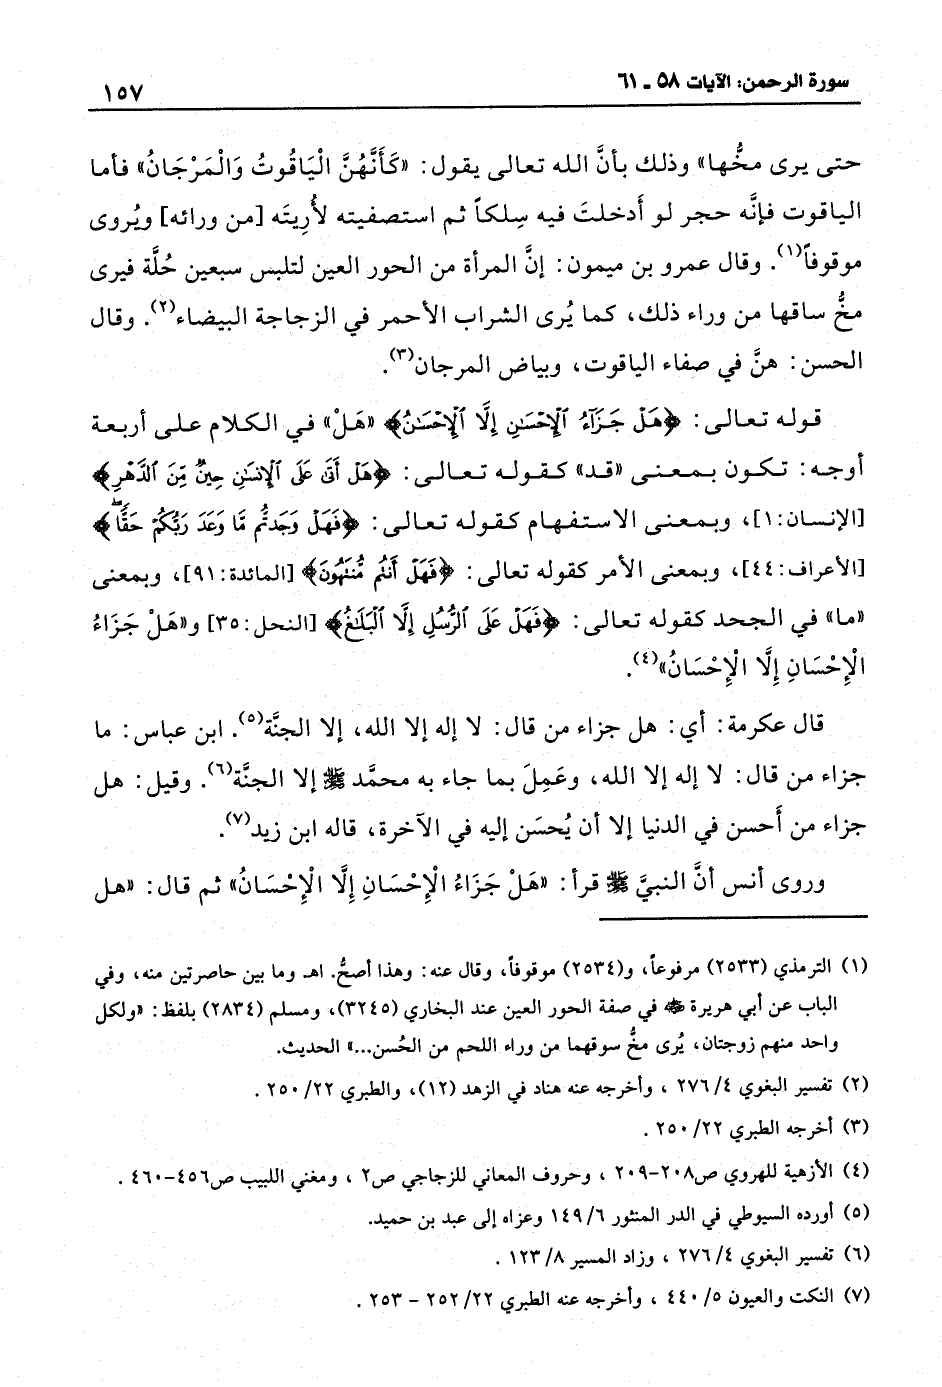 سورة الرحمن: الآيات ٥٨ ـ ٦١
١٥٧
حتى يرى مخُّها» وذلك بأنَّ الله تعالى يقول: «كَأَنَّهُنَّ الْيَاقُوتُ وَالْمَرْجَانُ» فأما
الياقوت فإنَّه حجر لو أَدخلتَ فيه سِلكاً ثم استصفيته لأُرِيتَه [من ورائه] ويُروى
موقوفاً(١). وقال عمرو بن ميمون: إنَّ المرأة من الحور العين لتلبس سبعين حُلَّة فيرى
مخُّ ساقها من وراء ذلك، كما يُرى الشراب الأحمر في الزجاجة البيضاء(٢). وقال
الحسن: هنَّ في صفاء الياقوت، وبياض المرجان(٣).
قوله تعالى: ﴿هَلْ جَزَآءُ ٱلْإِحْسَٰنِ إِلَّا ٱلْإِحْسَٰنُ﴾ «هَلْ» في الكلام على أربعة
أوجه: تكون بمعنى «قد» كقوله تعالى: ﴿هَلْ أَتَىٰ عَلَى ٱلْإِنسَٰنِ حِينٌ مِّنَ ٱلدَّهْرِ﴾
[الإنسان:١]، وبمعنى الاستفهام كقوله تعالى: ﴿فَهَلْ وَجَدتُّم مَّا وَعَدَ رَبُّكُمْ حَقًّا ۖ﴾
[الأعراف:٤٤]، وبمعنى الأمر كقوله تعالى: ﴿فَهَلْ أَنتُم مُّنتَهُونَ﴾ [المائدة:٩١]، وبمعنى
«ما» في الجحد كقوله تعالى: ﴿فَهَلْ عَلَى ٱلرُّسُلِ إِلَّا ٱلْبَلَٰغُ﴾ [النحل:٣٥] و«هَلْ جَزَاءُ
الْإِحْسَانِ إِلَّا الْإِحْسَانُ»(٤).
قال عكرمة: أي: هل جزاء من قال: لا إله إلا الله، إلا الجنَّة(٥). ابن عباس: ما
جزاء من قال: لا إله إلا الله، وعَمِلَ بما جاء به محمَّد ﷺ إلا الجنة(٦). وقيل: هل
جزاء من أَحسن في الدنيا إلا أن يُحسَن إليه في الآخرة، قاله ابن زيد(٧).
وروى أنس أنَّ النبيَّ ﷺ قرأ: «هَلْ جَزَاءُ الْإِحْسَانِ إِلَّا الْإِحْسَانُ» ثم قال: «هل
(١) الترمذي (٢٥٣٣) مرفوعاً، و(٢٥٣٤) موقوفاً، وقال عنه: وهذا أصحُّ. اهـ وما بين حاصرتين منه، وفي
الباب عن أبي هريرة ﷺ في صفة الحور العين عند البخاري (٣٢٤٥)، ومسلم (٢٨٣٤) بلفظ: «ولكل
واحد منهم زوجتان، يُرى مخُّ سوقهما من وراء اللحم من الحُسن...» الحديث.
(٢) تفسير البغوي ٤/ ٢٧٦ ، وأخرجه عنه هناد في الزهد (١٢)، والطبري ٢٢/ ٢٥٠ .
(٣) أخرجه الطبري ٢٢/ ٢٥٠ .
(٤) الأزهية للهروي ص٢٠٨-٢٠٩ ، وحروف المعاني للزجاجي ص٢ ، ومغني اللبيب ص٤٥٦-٤٦٠ .
(٥) أورده السيوطي في الدر المنثور ٦/ ١٤٩ وعزاه إلى عبد بن حميد.
(٦) تفسير البغوي ٤/ ٢٧٦ ، وزاد المسير ٨/ ١٢٣ .
(٧) النكت والعيون ٥/ ٤٤٠ ، وأخرجه عنه الطبري ٢٢/ ٢٥٢ - ٢٥٣ .